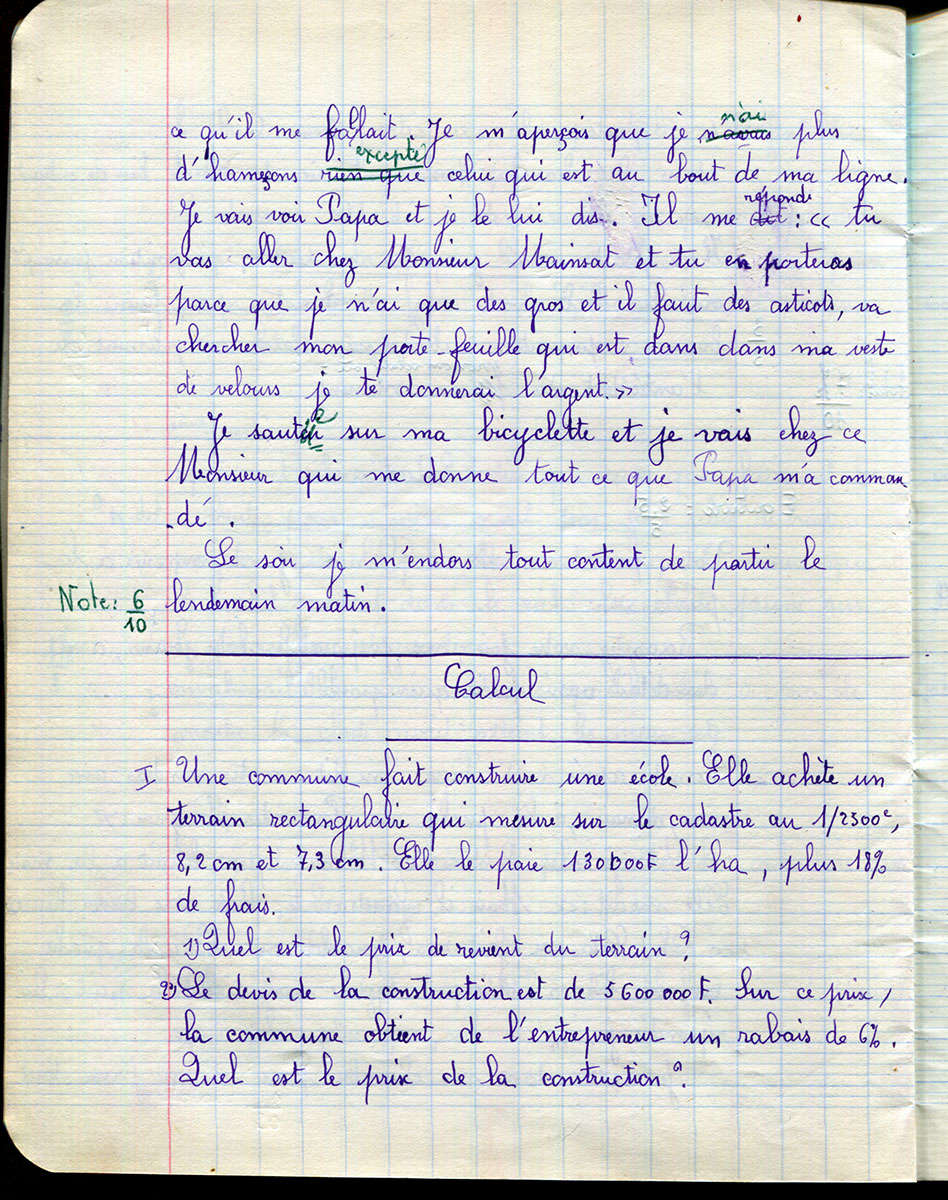 ce qu'il me fallait. Je m'aperçois que je n'avais n'ai plus
d'hameçons rien que excepté celui qui est au bout de ma ligne.
Je vais voir Papa et je le lui dis. Il me dit répond : « tu
vas aller chez Monsieur Mainsat et tu en porteras
parce que je n'ai que des gros et il faut des asticots, va
chercher mon porte-feuille qui est dans dans ma veste
de velours je te donnerai l'argent. »
Je saute sur ma bicyclette et je vais chez ce
Monsieur qui me donne tout ce que Papa m'a comman
dé.
Le soir je m'endors tout content de partir le
lendemain matin.
Note: 6/10
Calcul
I Une commune fait construire une école. Elle achète un
terrain rectangulaire qui mesure sur le cadastre au 1/2500e,
8,2 cm et 7,3 cm. Elle le paie 130000F l'ha, plus 18%
de frais.
1) Quel est le prix de revient du terrain ?
2) Le devis de la construction est de 5600000F. Sur ce prix,
la commune obtient de l'entrepreneur un rabais de 6%.
Quel est le prix de la construction ?